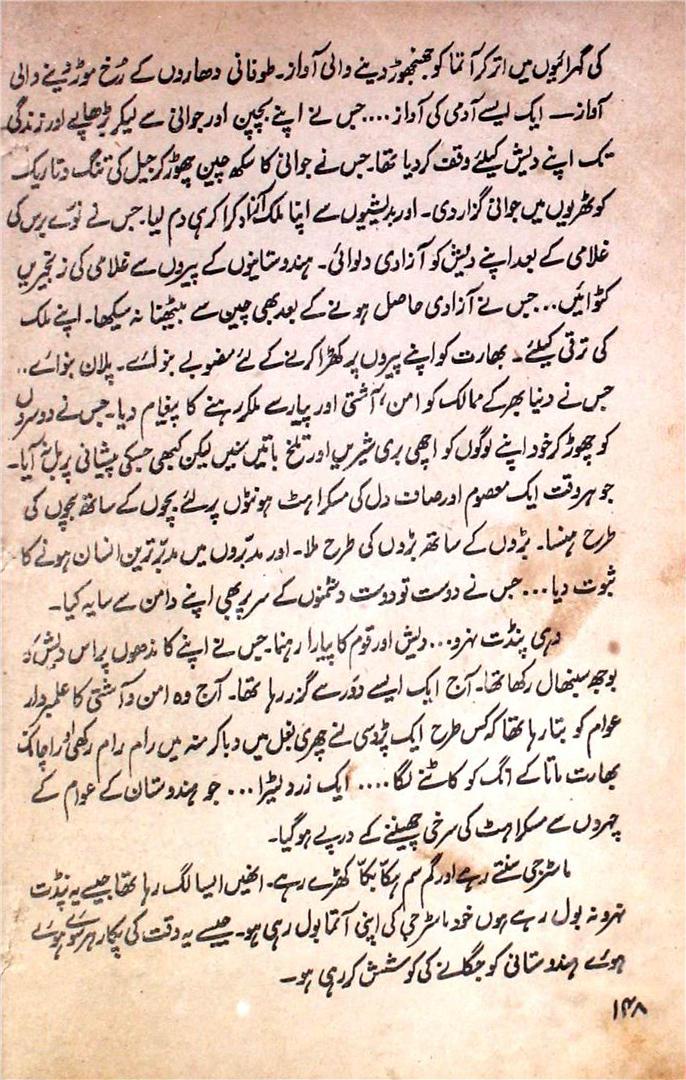 کی گہرائیوں میں اتر کر آتما کو جھنجھوڑ دینے والی آواز۔ طوفانی دھاروں کے رُخ موڑ دینے والی
آواز۔ ایک ایسے آدمی کی آواز.... جس نے اپنے بچپن اور جوانی سے لیکر بڑھاپے اور زندگی
تک اپنے دیش کیلئے وقف کر دیا تھا۔ جس نے جوانی کا سکھ چین چھوڑ کر جیل کی تنگ و تاریک
کوٹھریوں میں جوانی گزار دی۔ اور بدیشیوں سے اپنا ملک آزاد کرا کر ہی دم لیا۔ جس نے نوّے برس کی
غلامی کے بعد اپنے دیش کو آزادی دلوائی۔ ہندوستانیوں کے پیروں سے غلامی کی زنجیریں
کٹوائیں... جس نے آزادی حاصل ہونے کے بعد بھی چین سے بیٹھنا نہ سیکھا۔ اپنے ملک
کی ترقی کیلئے۔ بھارت کو اپنے پیروں پر کھڑا کرنے کے لئے منصوبے بنوائے۔ پلان بنوائے..
جس نے دنیا بھر کے ممالک کو امن، آشتی اور پیار سے ملکر رہنے کا پیغام دیا۔ جس نے دوسروں
کو چھوڑ کر خود اپنے لوگوں کو اچھی بری شیریں اور تلخ باتیں سنیں لیکن کبھی جسکی پیشانی پر بل نہ آیا۔
جو ہر وقت ایک معصوم اور صاف دل کی مسکراہٹ ہونٹوں پر لئے بچوں کے ساتھ بچوں کی
طرح ہنسا۔ بڑوں کے ساتھ بڑوں کی طرح ملا۔ اور مدبّروں میں مدبّر ترین انسان ہونے کا
ثبوت دیا... جس نے دوست تو دوست دشمنوں کے سر پر بھی اپنے دامن سے سایہ کیا۔
وہی پنڈت نہرو... دیش اور قوم کا پیارا رہنما۔ جس نے اپنے کاندھوں پر اس دیش کا
بوجھ سنبھال رکھا تھا۔ آج ایک ایسے دَور سے گزر رہا تھا۔ آج وہ امن و آشتی کا علمبردار
عوام کو بتا رہا تھا کہ کس طرح ایک پڑوسی نے چھری بغل میں دبا کر منہ میں رام رام رکھی اور اچانک
بھارت ماتا کے انگ کو کاٹنے لگا.... ایک زرد لٹیرا... جو ہندوستان کے عوام کے
چہروں سے مسکراہٹ کی سرخی چھیننے کے درپے ہو گیا۔
ماسٹر جی سنتے رہے اور گم سم ہکّا بکّا کھڑے رہے۔ انھیں ایسا لگ رہا تھا جیسے یہ پنڈت
نہرو نہ بول رہے ہوں خود ماسٹر جی کی اپنی آتما بول رہی ہو۔ جیسے یہ وقت کی پکار ہر سوئے
ہوئے ہندوستانی کو جگانے کی کوشش کر رہی ہو۔
۱۴۸